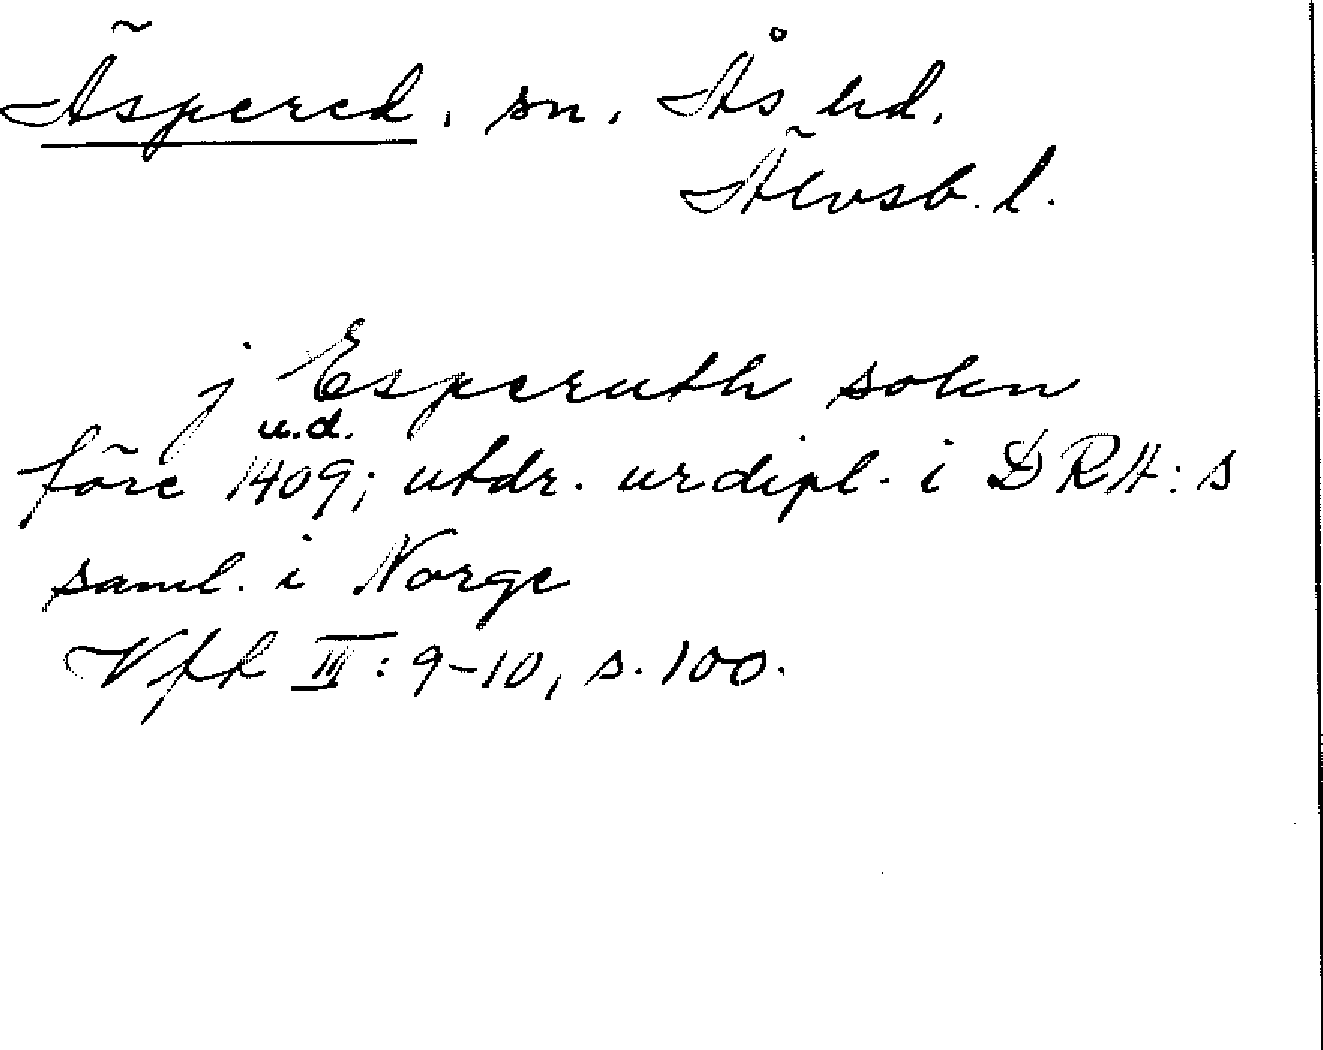 Äspered, sn, Ås hd,
Älvsb. l.
j Esperuth sokn
u.d.
före 1409; utdr. ur dipl. i DRA:s
saml. i Norge
Vfk III: 9-10, s. 100.